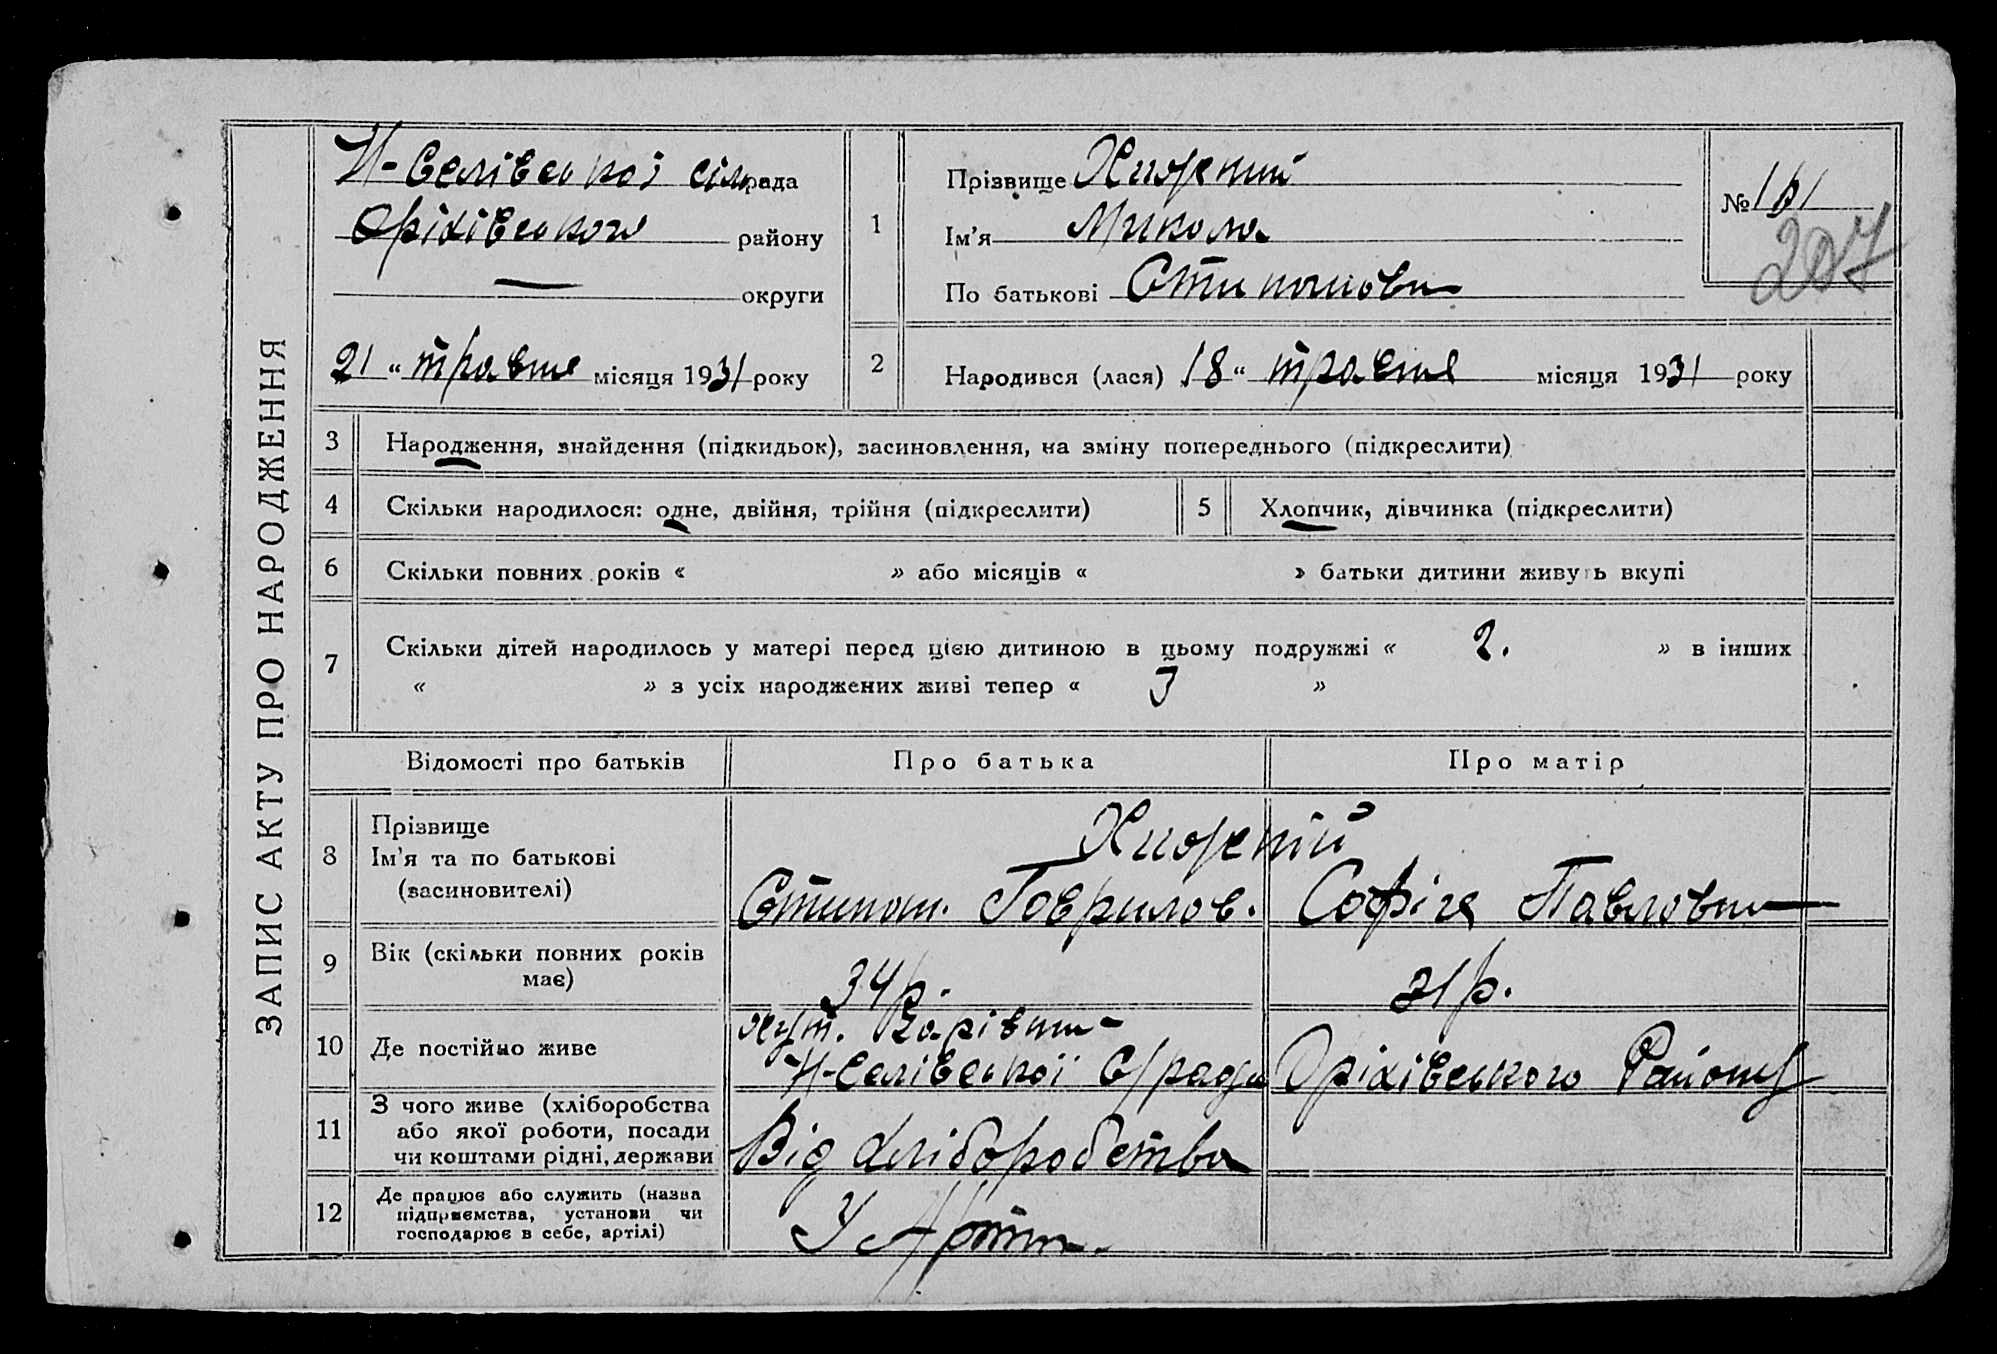 ЗАПИС АКТУ ПРО НАРОДЖЕННЯ
Н-Селівської сільрада
Оріхівського району
— округи
21 " травня місяця 1931 року
1
Прізвище
Ім'я Микола
По батькові
№ 161
207
2
Народився (лася) 18 " травня місяця 1931 року
3 Народження, знайдення (підкидьок), засиновлення, на зміну попереднього (підкреслити)
4 Скільки народилося: одне, двійня, трійня (підкреслити) 5 Хлопчик, дівчинка (підкреслити)
6 Скільки повних років « » або місяців « » батьки дитини живуть вкупі
7 Скільки дітей народилось у матері перед цією дитиною в цьому подружжі « 2. » в інших
« » з усіх народжених живі тепер « 3 »
Відомості про батьків Про батька Про матір
8 Прізвище
Ім'я та по батькові
(засиновителі)
Гаврилов. Софія Павловн
9 Вік (скільки повних років
має)
34 р. 31 р.
10 Де постійно живе
хут.
Н-Селівської С/ради Оріхівського Району
11 З чого живе (хліборобства
або якої роботи, посади
чи коштами рідні, держави
Від хліборобства
12 Де працює або служить (назва
підприємства, установи чи
господарює в себе, артілі)
У